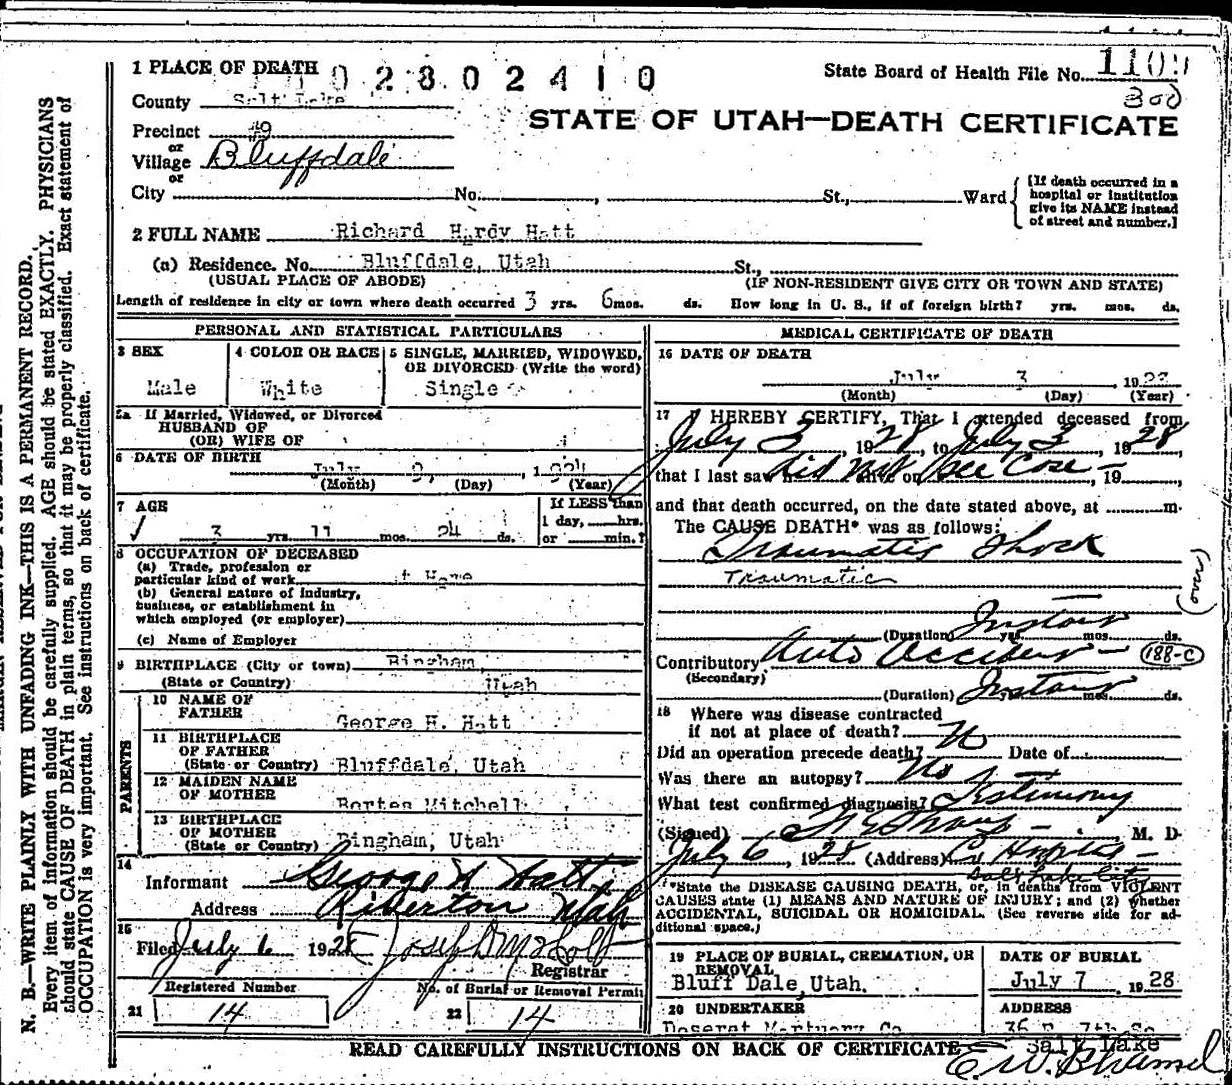 1 PLACE OF DEATH 1 1 0 2 8 0 2 4 1 0 State Board of Health File No. 1109
300
County Salt Lake
STATE OF UTAH—DEATH CERTIFICATE
Precinct #9
or
Village Bluffdale
or
City No. , St., Ward [If death occurred in a hospital or institution give its NAME instead of street and number.]
2 FULL NAME Richard Hardy Hatt
(a) Residence. No. Bluffdale, Utah St.,
(USUAL PLACE OF ABODE) (IF NON-RESIDENT GIVE CITY OR TOWN AND STATE)
Length of residence in city or town where death occurred 3 yrs. 6 mos. ds. How long in U. S., if of foreign birth? yrs. mos. ds.
PERSONAL AND STATISTICAL PARTICULARS
3 SEX
Male
4 COLOR OR RACE
White
5 SINGLE, MARRIED, WIDOWED,
OR DIVORCED (Write the word)
Single
5a If Married, Widowed, or Divorced
HUSBAND OF
(OR) WIFE OF
6 DATE OF BIRTH
July 9, 1924
(Month) (Day) (Year)
7 AGE
3 yrs. 11 mos. 24 ds.
If LESS than
1 day, hrs.
or min.?
8 OCCUPATION OF DECEASED
(a) Trade, profession or
particular kind of work t Home
(b) General nature of industry,
business, or establishment in
which employed (or employer)
(c) Name of Employer
9 BIRTHPLACE (City or town) Bingham
(State or Country) Utah
PARENTS
10 NAME OF
FATHER George H. Hatt
11 BIRTHPLACE
OF FATHER
(State or Country) Bluffdale, Utah
12 MAIDEN NAME
OF MOTHER Mitchell
13 BIRTHPLACE
OF MOTHER
(State or Country) Bingham, Utah
14
Informant George H Hatt
Address Riverton Utah
15
Filed July 6 1928 Joseph
Registrar
Registered Number No. of Burial or Removal Permit
21 14 22 14
MEDICAL CERTIFICATE OF DEATH
16 DATE OF DEATH
July 3, 1928
(Month) (Day) (Year)
17 I HEREBY CERTIFY, That I attended deceased from
July 3, 1928, to July 3, 1928
that I last saw h alive on Did not see case - , 19 ,
and that death occurred, on the date stated above, at m.
The CAUSE DEATH* was as follows:
Traumatic Shock
Traumatic
(Duration) yrs. mos. ds.
Contributory Auto Accident - 188-C
(Secondary)
(Duration) yrs. mos. ds.
18 Where was disease contracted
if not at place of death?
Did an operation precede death? No Date of
Was there an autopsy? No
What test confirmed diagnosis? Testimony
(Signed) , M. D.
July 6, 1928 (Address) Co Hospital -
Salt Lake City
*State the DISEASE CAUSING DEATH, or, in deaths from VIOLENT
CAUSES state (1) MEANS AND NATURE OF INJURY; and (2) whether
ACCIDENTAL, SUICIDAL OR HOMICIDAL. (See reverse side for ad-
ditional space.)
19 PLACE OF BURIAL, CREMATION, OR
REMOVAL
Bluff Dale, Utah.
DATE OF BURIAL
July 7 1928
20 UNDERTAKER
Deseret Mortuary Co
ADDRESS
36 E. 7th So
Salt Lake
READ CAREFULLY INSTRUCTIONS ON BACK OF CERTIFICATE
E. W.
N. B.—WRITE PLAINLY WITH UNFADING INK—THIS IS A PERMANENT RECORD.
Every item of information should be carefully supplied. AGE should be stated EXACTLY. PHYSICIANS
should state CAUSE OF DEATH in plain terms, so that it may be properly classified. Exact statement of
OCCUPATION is very important. See instructions on back of certificate.